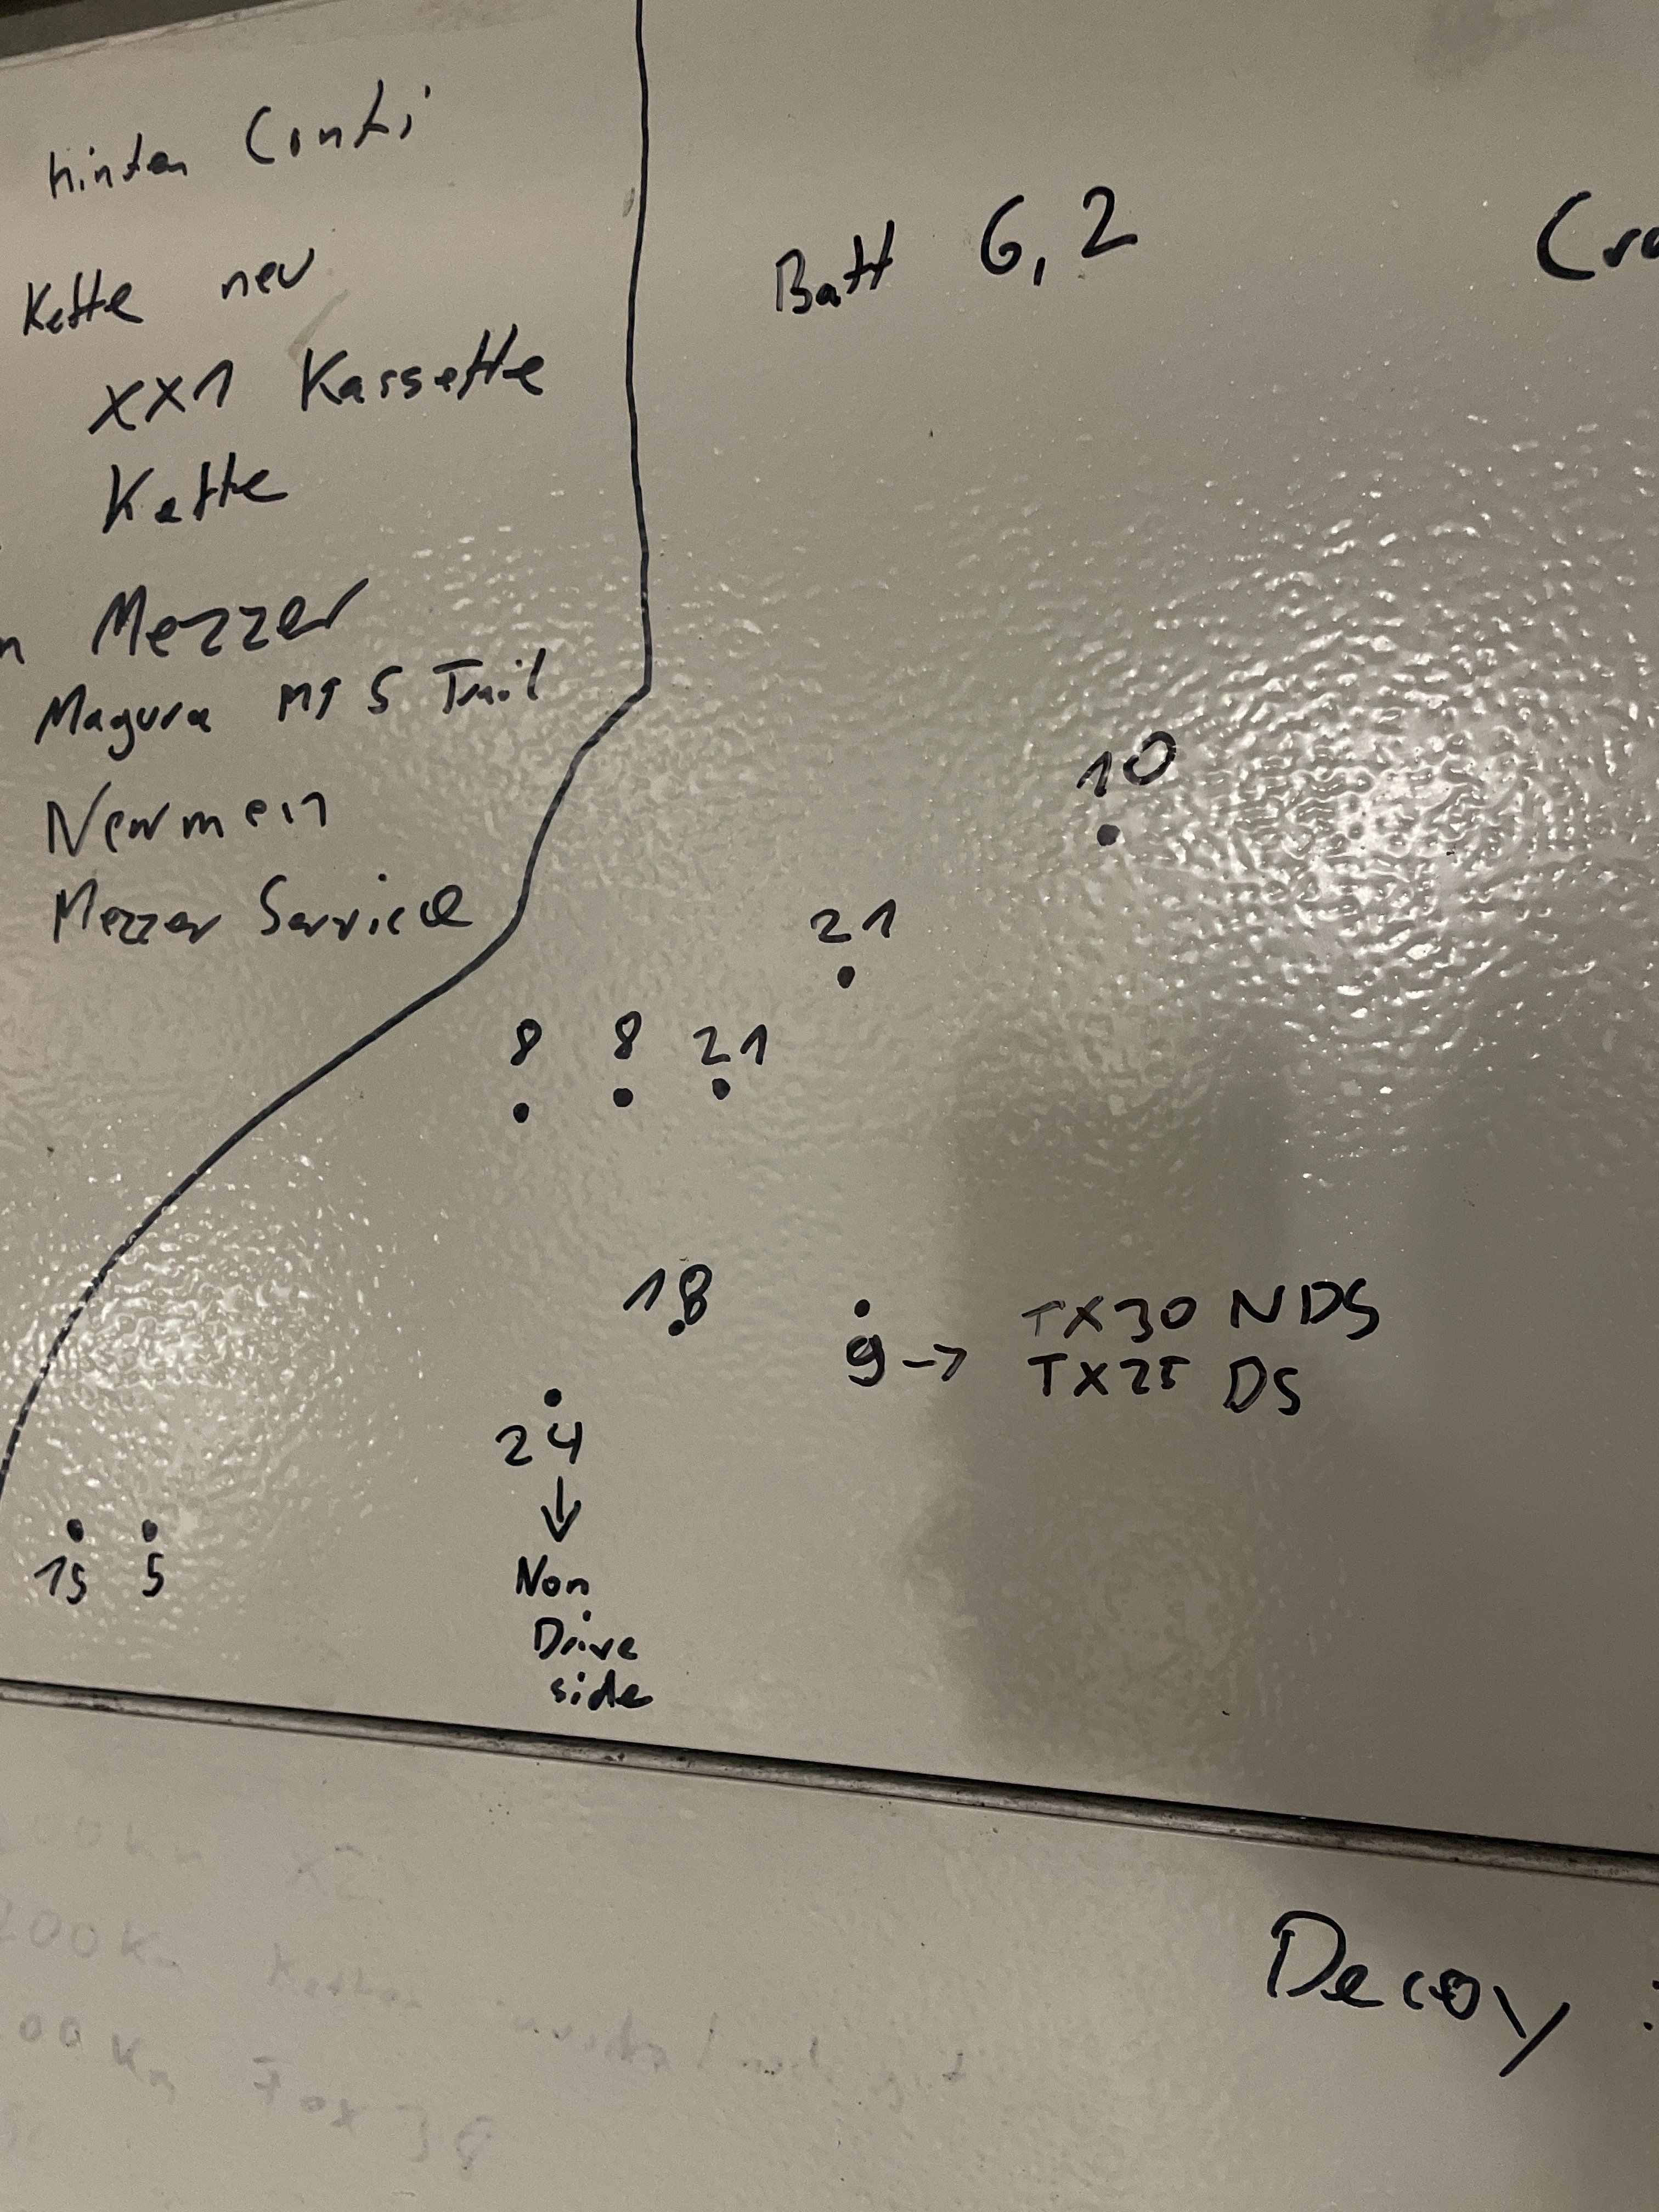 hinten Conti
Kette neu
XX1 Kassette
Kette
Mezzer
Magura MT5 Trail
Newmen
Mezzer Service
Batt 6,2
10
21
8 8 21
18
9 -> TX30 NDS
TX25 DS
24
↓
Non
Drive
side
15 5
Decoy :
00Km
Fox 38